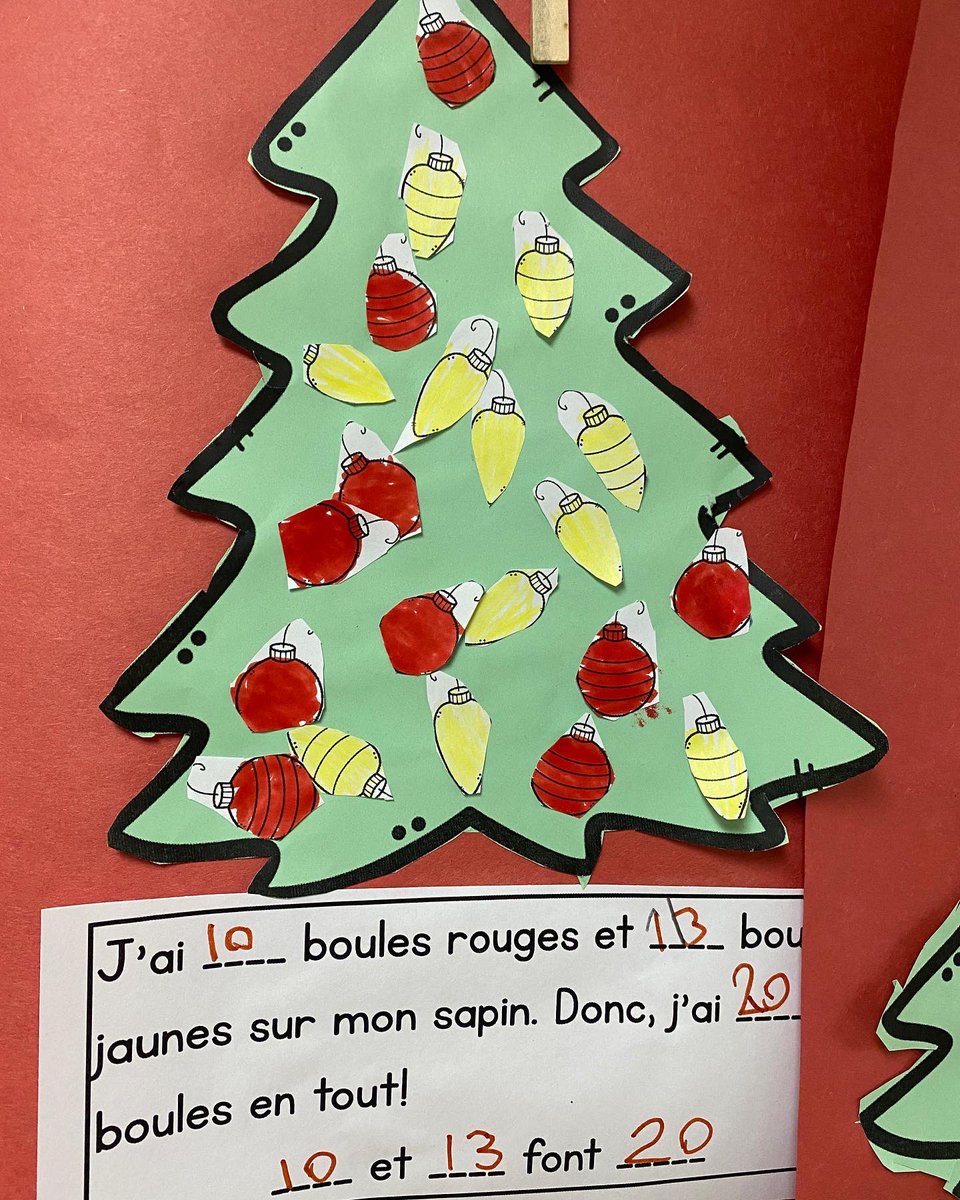 J'ai 10 boules rouges et 13 bou
jaunes sur mon sapin. Donc, j'ai 20
boules en tout!
10 et 13 font 20